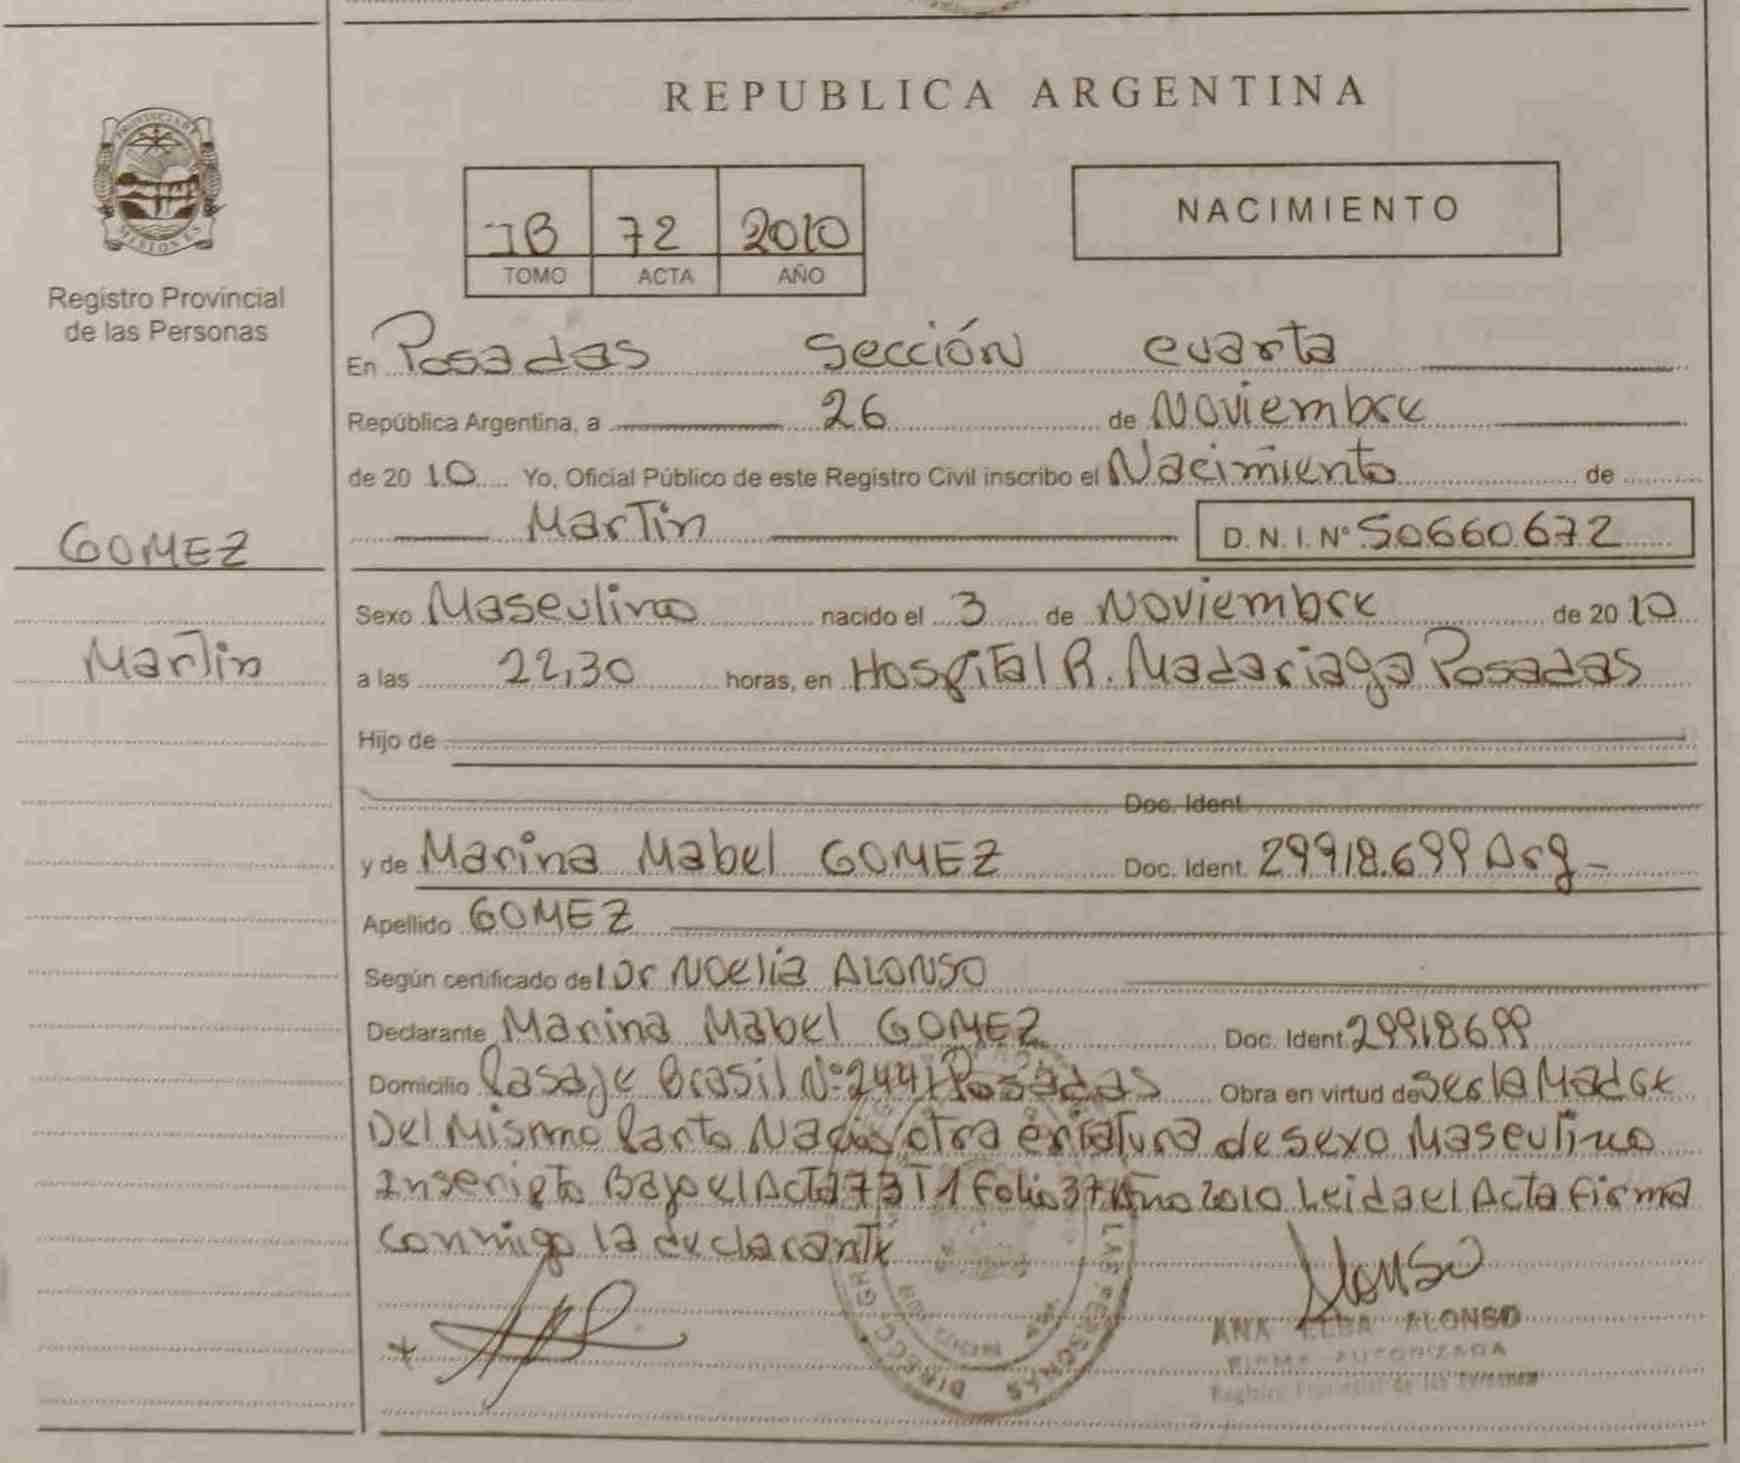 REPUBLICA ARGENTINA
PROVINCIA DE
MISIONES
Registro Provincial
de las Personas
1B 72 2010
TOMO ACTA AÑO
NACIMIENTO
En Posadas Sección cuarta
República Argentina, a 26 de Noviembre
de 2010 Yo, Oficial Público de este Registro Civil inscribo el Nacimiento de
Martin D. N. I. Nº 50660.672
GOMEZ
Martin
Sexo Masculino nacido el 3 de Noviembre de 2010
a las 22,30 horas, en Hospital R. Madariaga Posadas
Hijo de
Doc. Ident.
y de Marina Mabel GOMEZ Doc. Ident. 29918.699 Arg
Apellido GOMEZ
Según certificado del Dr Noelia ALONSO
Declarante Marina Mabel GOMEZ Doc. Ident. 29918699
Domicilio Pasaje Brasil Nº 2441 Posadas Obra en virtud de ser la Madre
Del Mismo Parto Nacio otra criatura de sexo Masculino
Inscripto Bajo el Acta 73 T1 folio 37 Año 2010 Leida el Acta firma
conmigo la declarante
Alonso
ANA ELBA ALONSO
FIRMA AUTORIZADA
Registro Provincial de las Personas